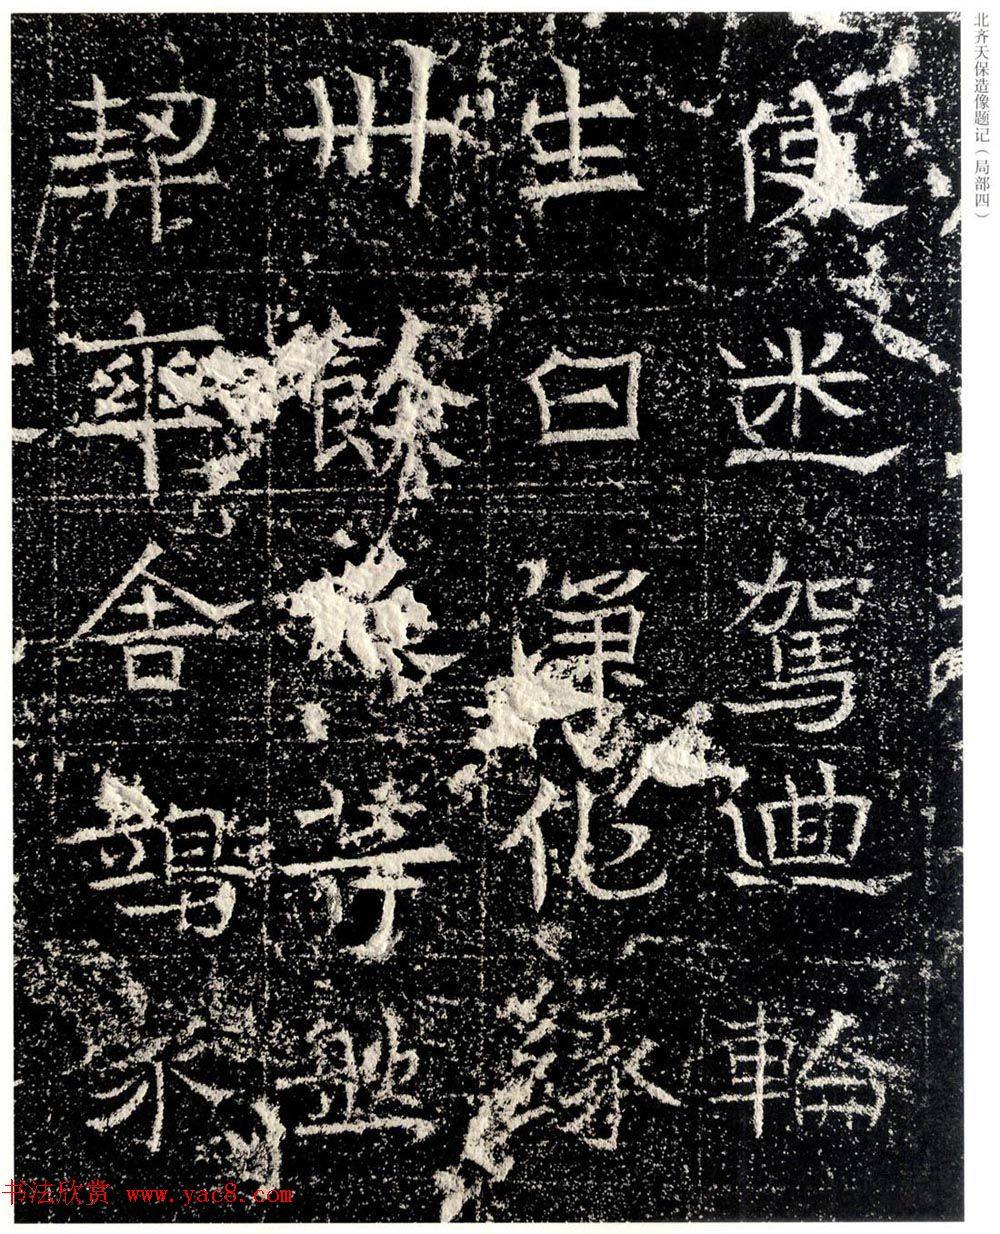 北齐天保造像题记（局部四）
使迷駕迴輪
生曰化緣
卅餘等並
契率舍
书法欣赏 www.yac8.com